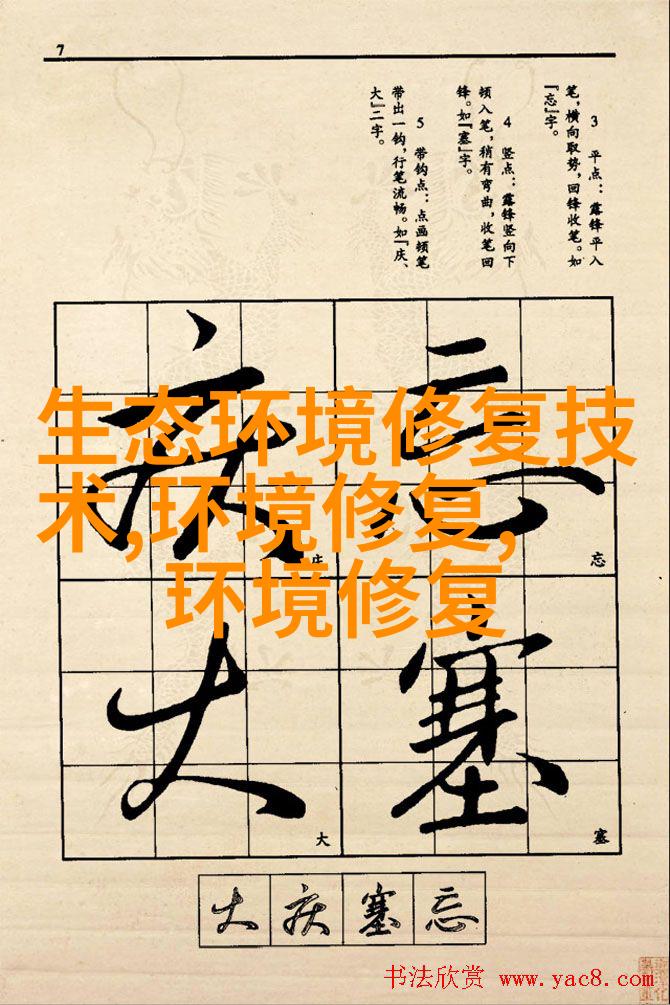 7
3 平点：露锋平入
笔，横向取势，回锋收笔。如
『忘』字。
4 竖点：露锋竖向下
顿入笔，稍有弯曲，收笔回
锋。如『塞』字。
5 带钩点：点画顿笔
带出一钩，行笔流畅。如『庆、
大』二字。
生态环境修复技
术,环境修复,
环境修复
庆 忘
庆
忘
大 塞
大
塞
大 庆 塞 忘
书法欣赏 www.yac8.com